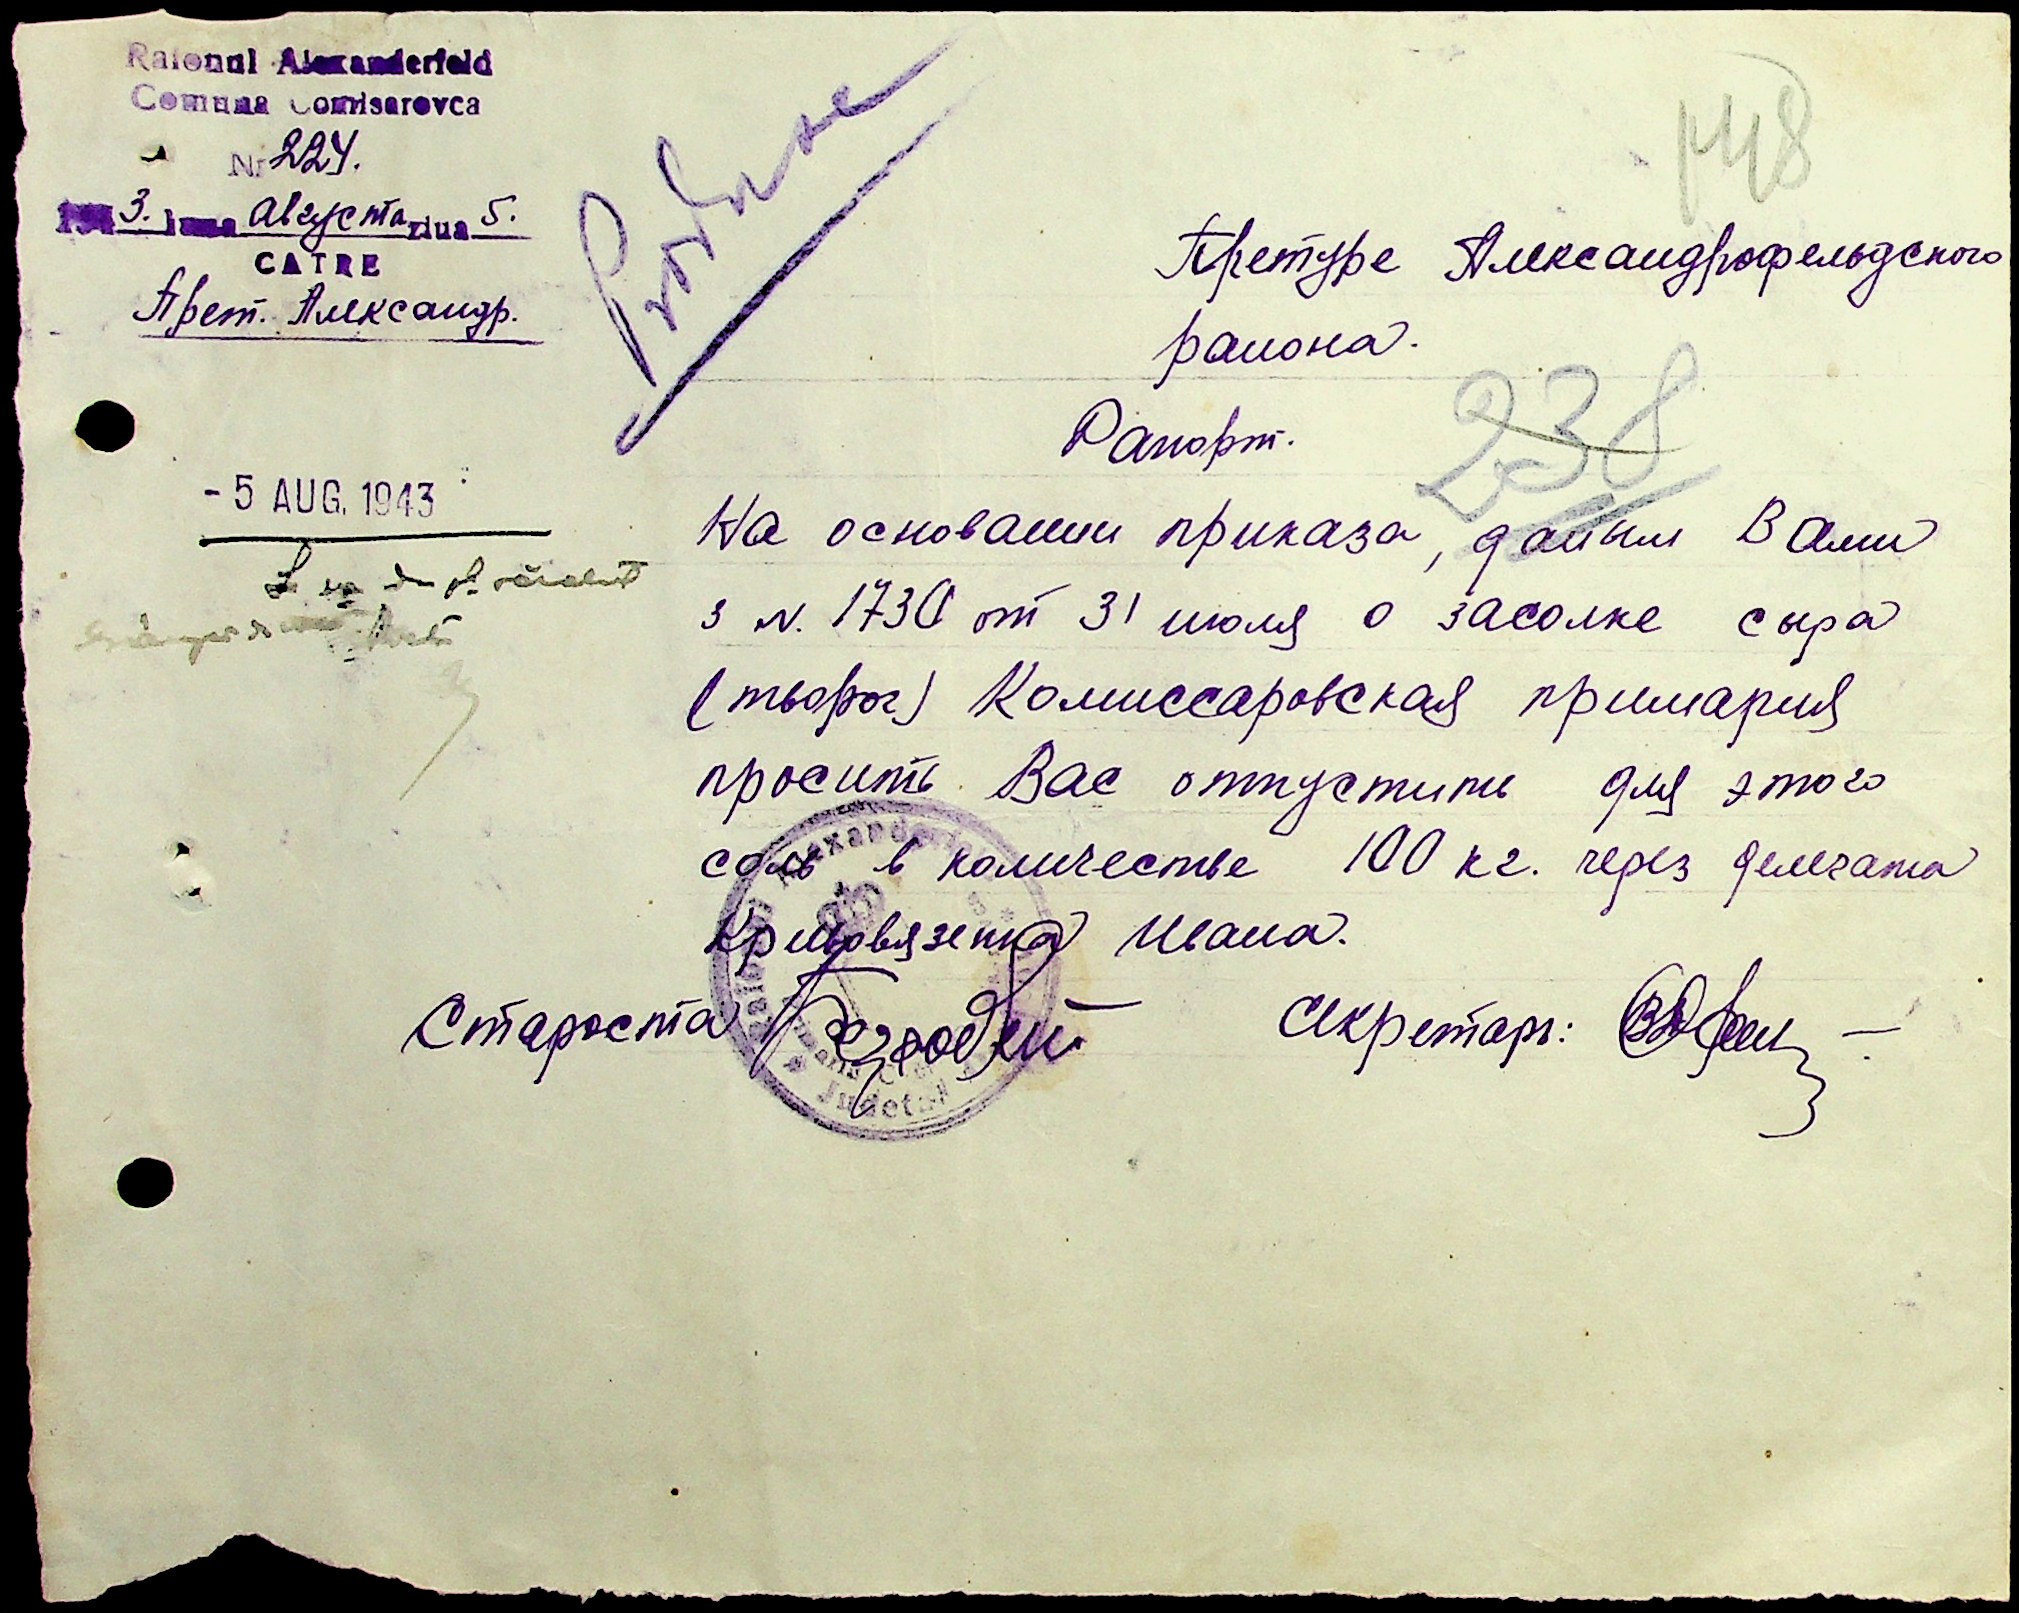 Raionul Alexanderfeld
Comuna Comisarovca
Nr 224.
1943. luna Августа ziua 5.
CATRE
Прет. Александр.
148
Претуре Александрофельдского
района.
Рапорт.
238
- 5 AUG. 1943
На основании приказа, даным Вами
з N. 1730 от 31 июля о засолке сыра
(творог) Комиссаровская примария
просить Вас отпустить для этого
соль в количестве 100 кг. через делегата
Кривовязенка Ивана.
Староста
Секретарь:
Judetul